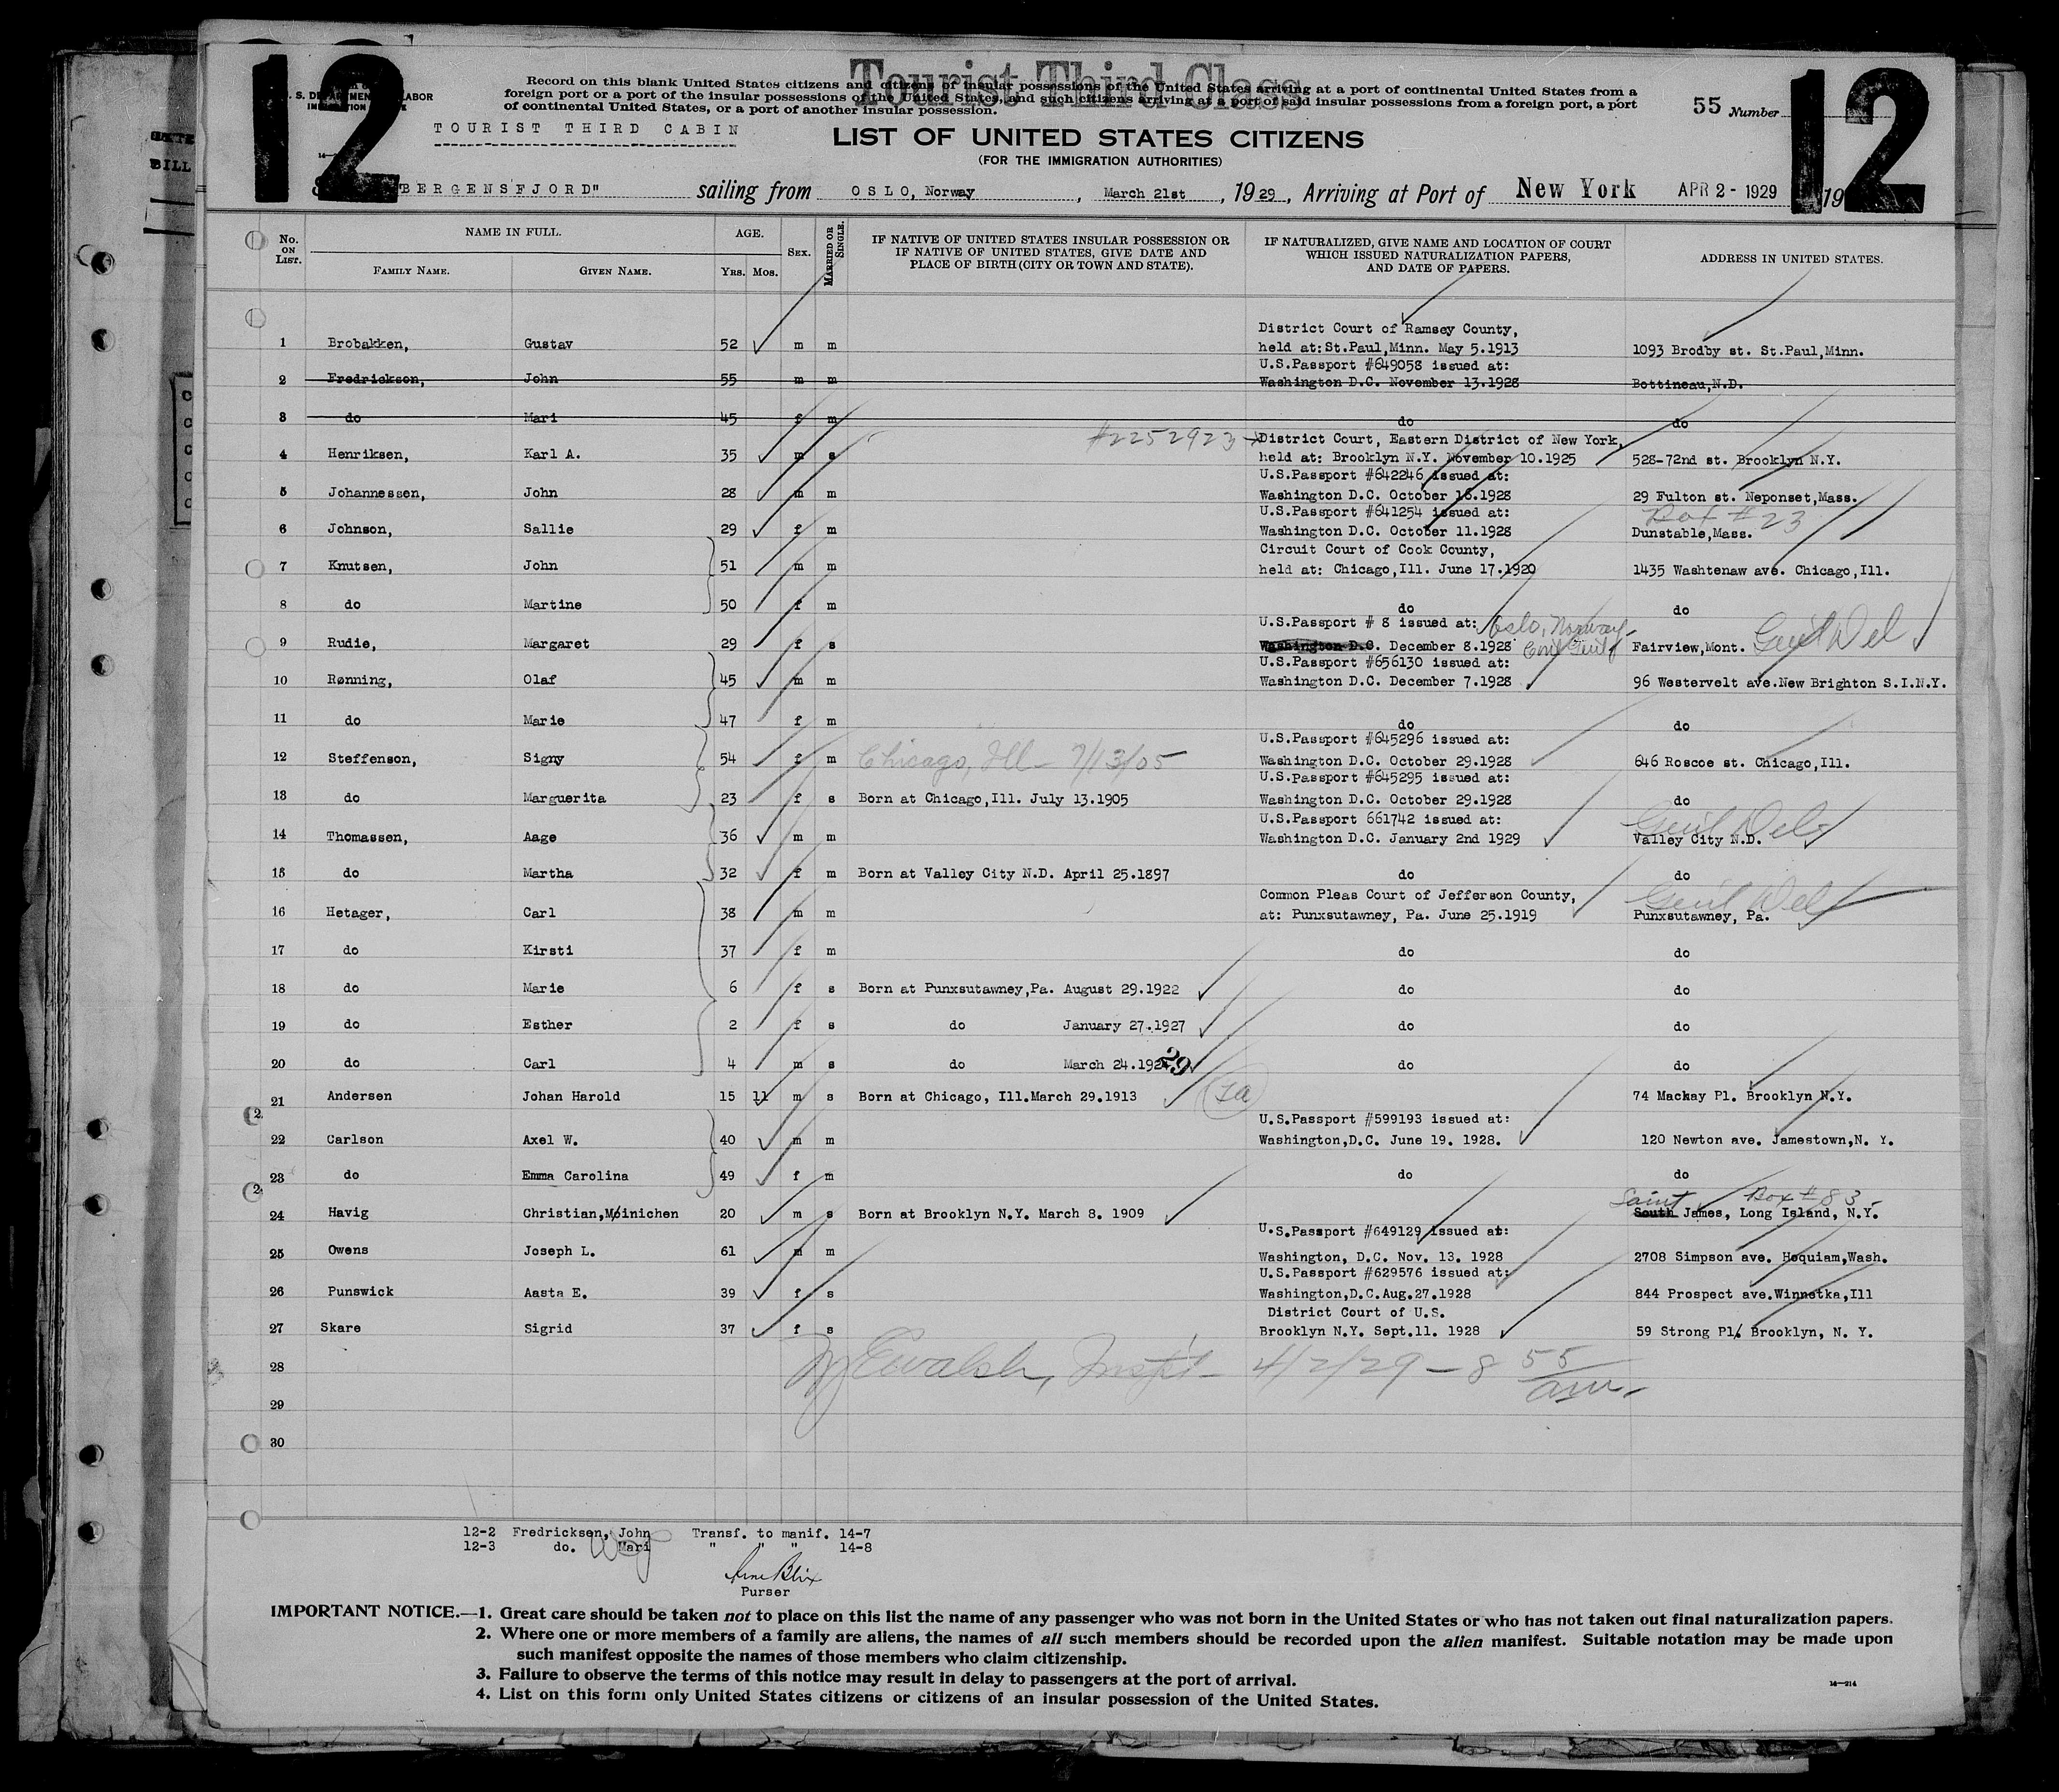 12 12
Tourist Third Class
S. DEPARTMENT LABOR
IMMIGRATION
Record on this blank United States citizens and citizens of insular possessions of the United States arriving at a port of continental United States from a
foreign port or a port of the insular possessions of the United States, and such citizens arriving at a port of said insular possessions from a foreign port, a port
of continental United States, or a port of another insular possession.
55 Number
TOURIST THIRD CABIN
LIST OF UNITED STATES CITIZENS
(FOR THE IMMIGRATION AUTHORITIES)
S "BERGENSFJORD" sailing from OSLO, Norway, March 21st, 1929, Arriving at Port of New York APR 2 - 1929 19
No. ON LIST. NAME IN FULL. FAMILY NAME. GIVEN NAME. AGE. YRS. MOS. SEX. MARRIED OR SINGLE. IF NATIVE OF UNITED STATES INSULAR POSSESSION OR IF NATIVE OF UNITED STATES, GIVE DATE AND PLACE OF BIRTH (CITY OR TOWN AND STATE). IF NATURALIZED, GIVE NAME AND LOCATION OF COURT WHICH ISSUED NATURALIZATION PAPERS, AND DATE OF PAPERS. ADDRESS IN UNITED STATES.
1 Brobakken, Gustav 52 m m District Court of Ramsey County, held at:St.Paul,Minn. May 5.1913 1093 Brodby st. St.Paul,Minn.
2 Fredrickson, John 55 m m U.S.Passport #649058 issued at: Washington D.C. November 13.1928 Bottineau,N.D.
3 do Mari 45 f m do do
4 Henriksen, Karl A. 35 m s #2252923 District Court, Eastern District of New York, held at: Brooklyn N.Y. November 10.1925 528-72nd st. Brooklyn N.Y.
5 Johannessen, John 28 m m U.S.Passport #642246 issued at: Washington D.C. October 16.1928 29 Fulton st. Neponset,Mass.
6 Johnson, Sallie 29 f m U.S.Passport #641254 issued at: Washington D.C. October 11.1928 Box #23 Dunstable,Mass.
7 Knutsen, John 51 m m Circuit Court of Cook County, held at: Chicago,Ill. June 17.1920 1435 Washtenaw ave. Chicago,Ill.
8 do Martine 50 f m do do
9 Rudie, Margaret 29 f s U.S.Passport # 8 issued at: Oslo, Norway Washington D.C. December 8.1928 Fairview,Mont. Genl Del
10 Rønning, Olaf 45 m m U.S.Passport #656130 issued at: Washington D.C. December 7.1928 96 Westervelt ave.New Brighton S.I.N.Y.
11 do Marie 47 f m do do
12 Steffenson, Signy 54 f m Chicago, Ill - 7/13/05 U.S.Passport #645296 issued at: Washington D.C. October 29.1928 646 Roscoe st. Chicago,Ill.
13 do Marguerita 23 f s Born at Chicago,Ill. July 13.1905 U.S.Passport #645295 issued at: Washington D.C. October 29.1928 do
14 Thomassen, Aage 36 m m U.S.Passport 661742 issued at: Washington D.C. January 2nd 1929 Genl Del Valley City N.D.
15 do Martha 32 f m Born at Valley City N.D. April 25.1897 do do
16 Hetager, Carl 38 m m Common Pleas Court of Jefferson County, at: Punxsutawney, Pa. June 25.1919 Genl Del Punxsutawney, Pa.
17 do Kirsti 37 f m do do
18 do Marie 6 f s Born at Punxsutawney,Pa. August 29.1922 do do
19 do Esther 2 f s do January 27.1927 do do
20 do Carl 4 m s do March 24.192 29 do do
21 Andersen Johan Harold 15 11 m s Born at Chicago, Ill.March 29.1913 74 Mackay Pl. Brooklyn N.Y.
22 Carlson Axel W. 40 m m U.S.Passport #599193 issued at: Washington,D.C. June 19. 1928. 120 Newton ave. Jamestown,N. Y.
23 do Emma Carolina 49 f m do do
24 Havig Christian,Møinichen 20 m s Born at Brooklyn N.Y. March 8. 1909 Saint Box #83 South James, Long Island, N.Y.
25 Owens Joseph L. 61 m m U.S.Passport #649129 issued at: Washington, D.C. Nov. 13. 1928 2708 Simpson ave. Hoquiam,Wash.
26 Punswick Aasta E. 39 f s U.S.Passport #629576 issued at: Washington,D.C.Aug.27.1928 844 Prospect ave.Winnetka,Ill
27 Skare Sigrid 37 f s District Court of U.S. Brooklyn N.Y. Sept.11. 1928 59 Strong Pl. Brooklyn, N. Y.
28 Walsh, Insp't - 4/2/29 - 8 55 am.
29
30
12-2 Fredricksen, John Transf. to manif. 14-7
12-3 do. Mari " " " 14-8
Arne Blix
Purser
IMPORTANT NOTICE.—1. Great care should be taken not to place on this list the name of any passenger who was not born in the United States or who has not taken out final naturalization papers.
2. Where one or more members of a family are aliens, the names of all such members should be recorded upon the alien manifest. Suitable notation may be made upon
such manifest opposite the names of those members who claim citizenship.
3. Failure to observe the terms of this notice may result in delay to passengers at the port of arrival.
4. List on this form only United States citizens or citizens of an insular possession of the United States.
14—214